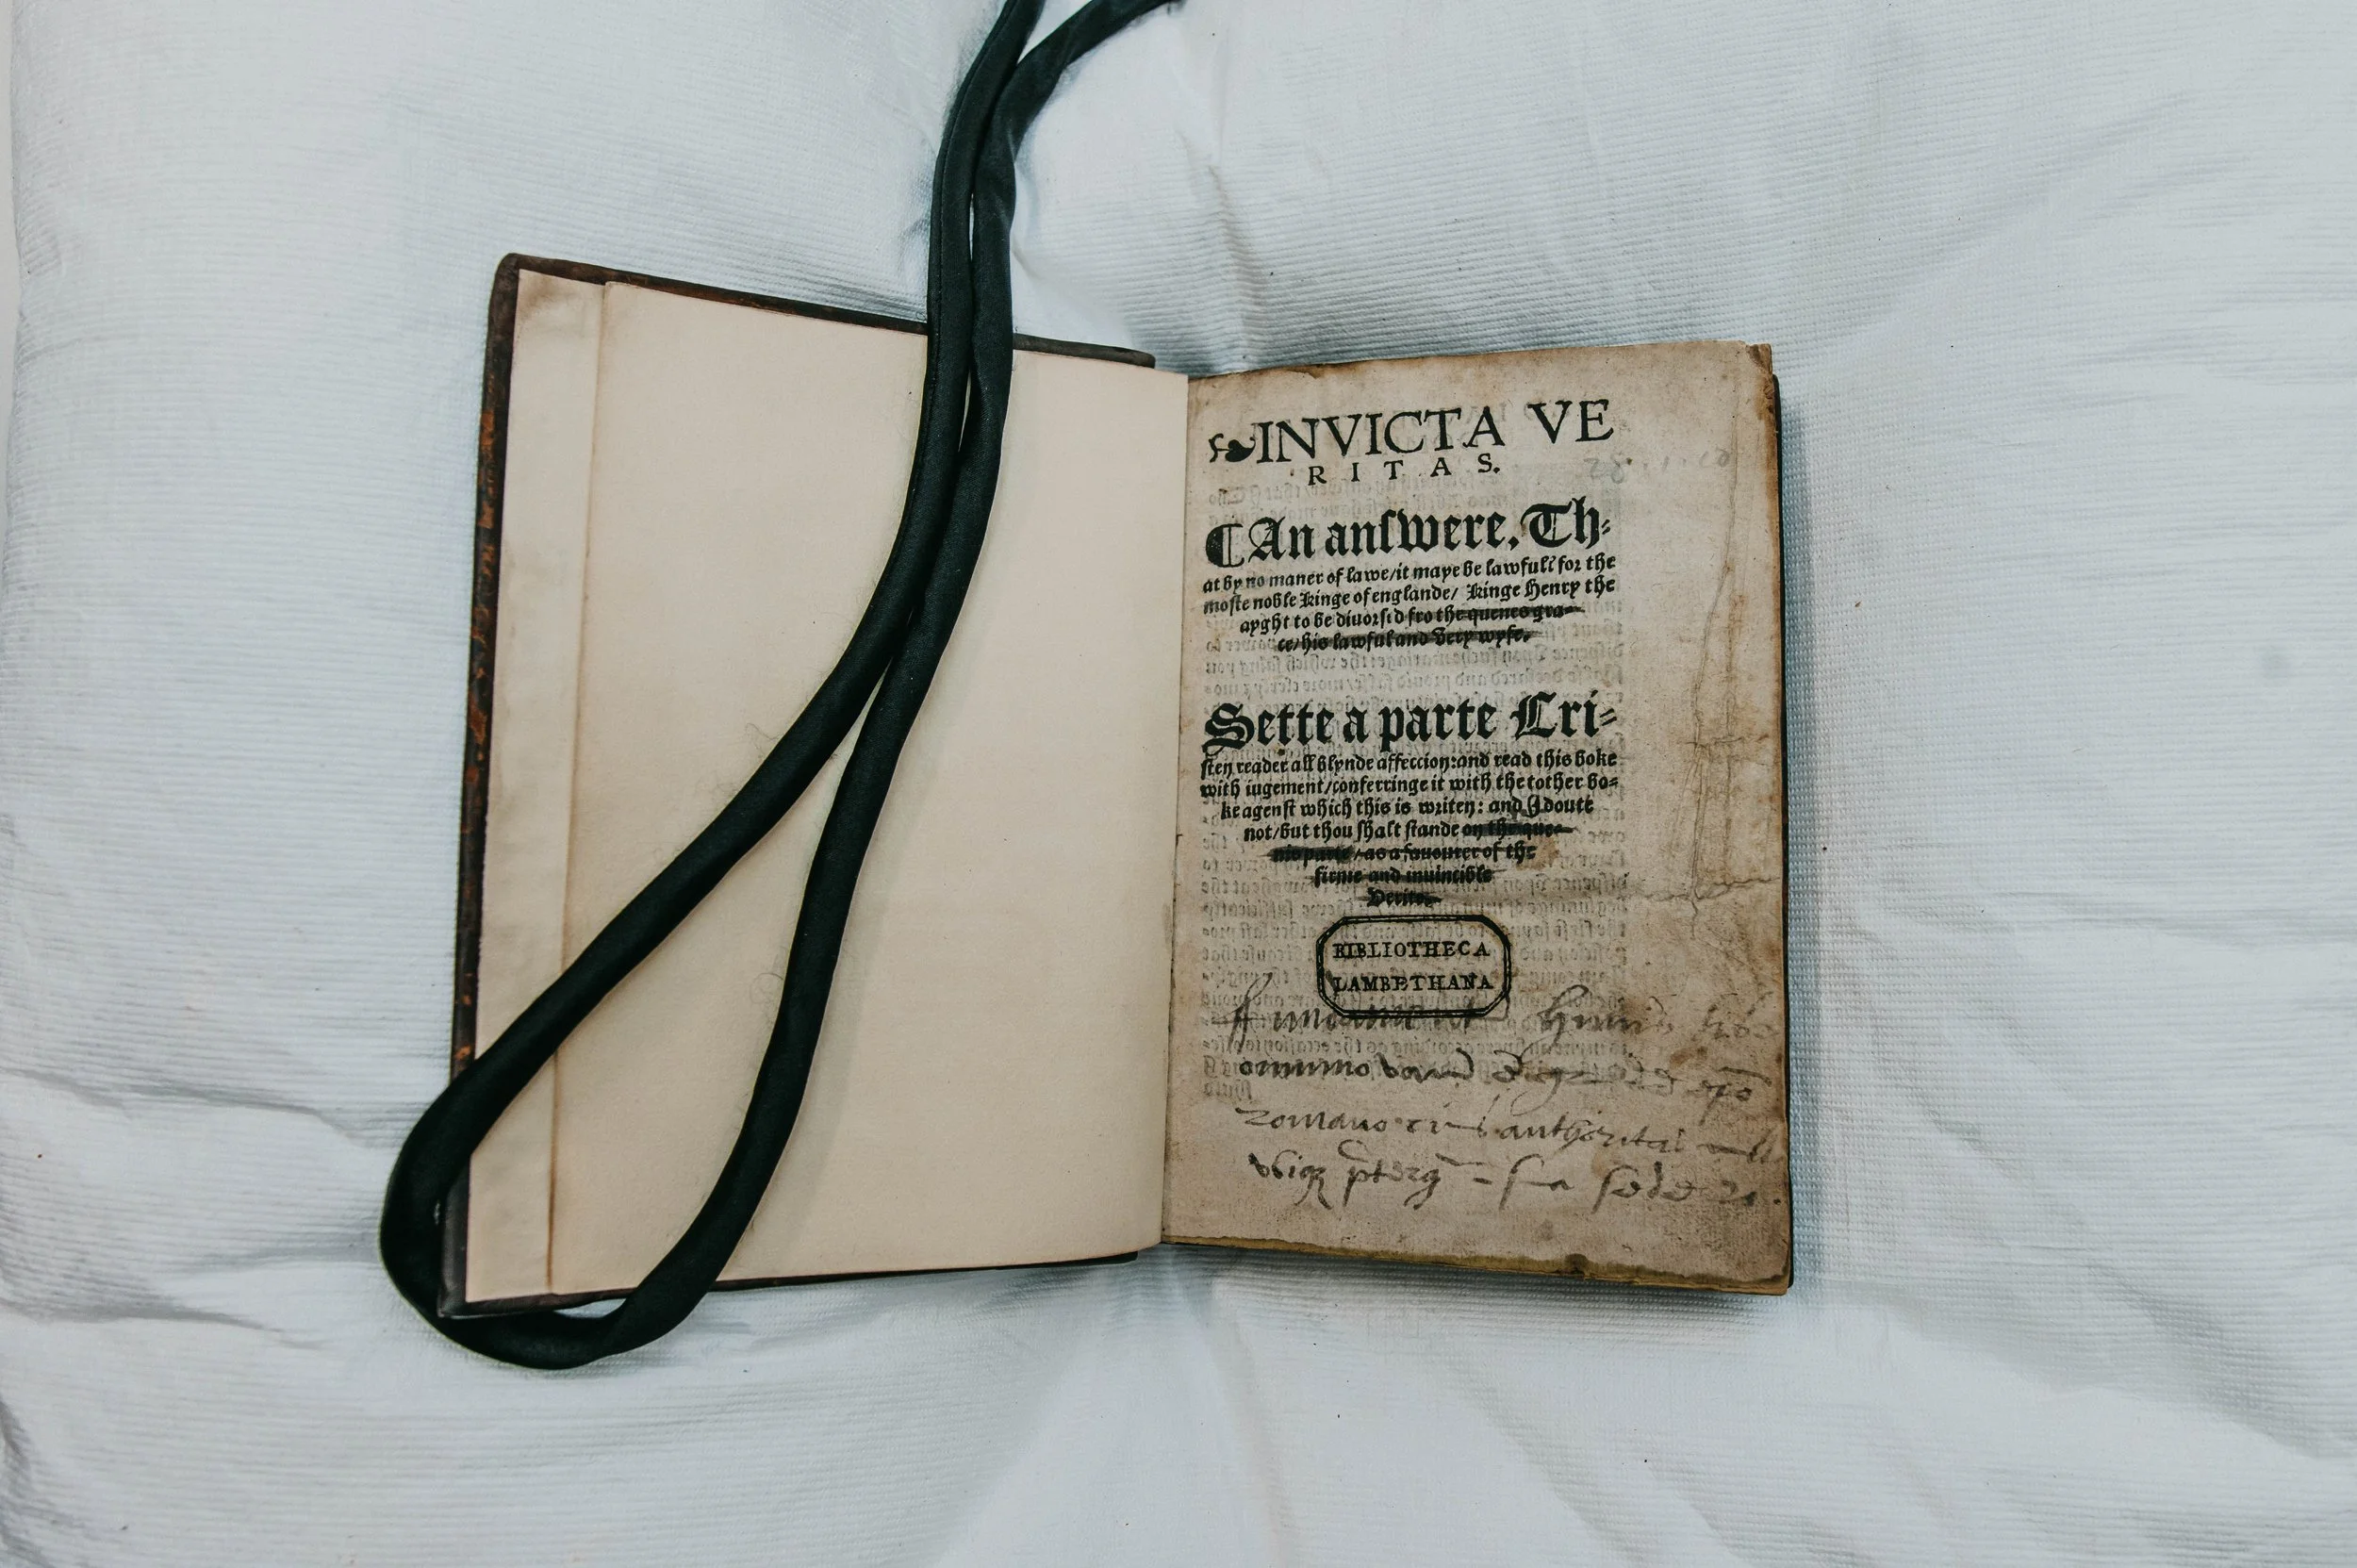 INVICTA VE
RITAS.
28.1.10
¶ An anſwere, Th⸗
at by no maner of lawe/it maye be lawfull for the
moſte noble Kinge of englande/ Kinge Henry the
ayght to be diuorſid fro the quenes gra⸗
ce/his lawful and very wyfe.
Sette a parte Cri⸗
ſten reader all blynde affeccion:and read this boke
with iugement/conferringe it with the tother bo⸗
ke agenſt which this is writen: and I doute
not/but thou ſhalt ſtande on the que⸗
nis parte/as a fauourer of the
firme and inuincible
Verite.
BIBLIOTHECA
LAMBETHANA
omnino
romano authoritat
ſua ſede